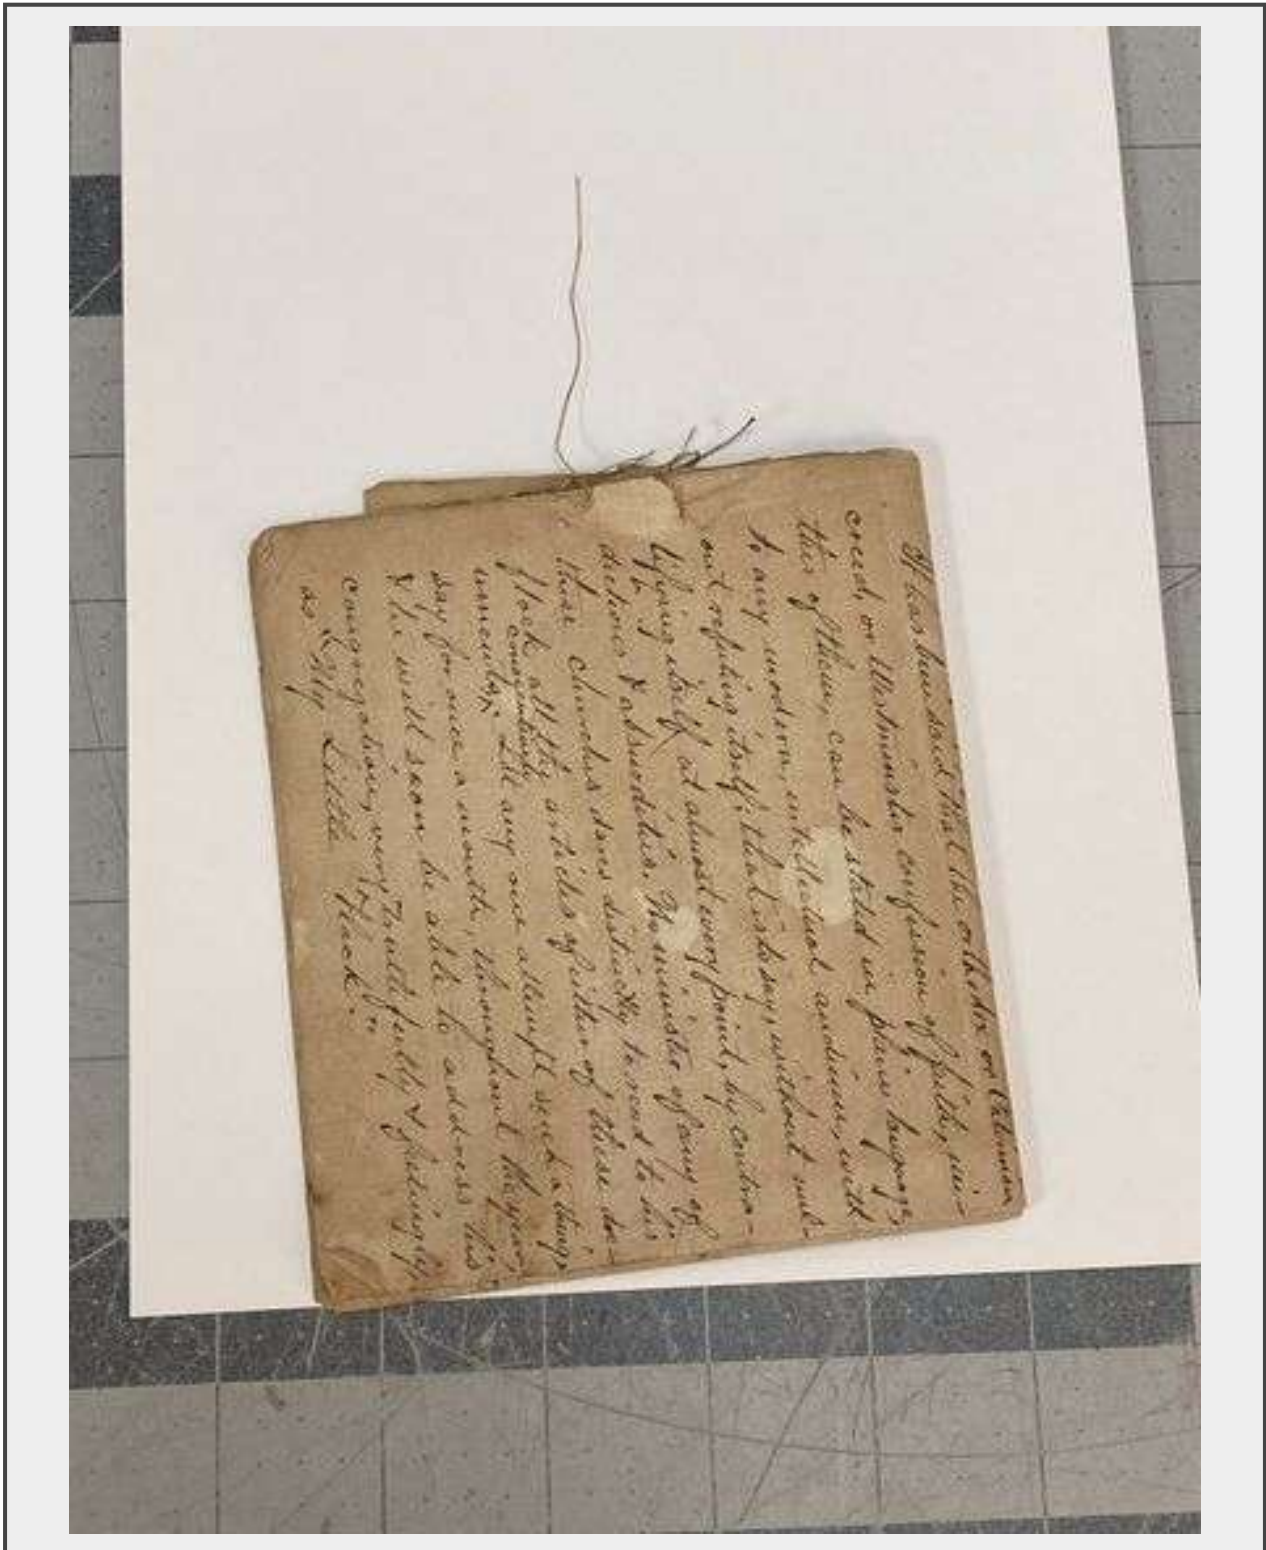 It has been said that the orthodox or Calvinian
creed, or Westminster confession of faith, nei-
ther of them, can be stated in plain language,
to any modern, intellectual audience, with
out refuting itself; that is to say, without nul-
lifying itself at almost every point, by contra-
dictions & absurdities. No minister of any of
these churches dares distinctly to read to his
flock all the articles of either of these do-
cuments. Let any one attempt such a thing,
consecutively
say for once a month, throughout the year,
& he will soon be able to address his
congregation, very truthfully & feelingly,
as "My Little Flock".